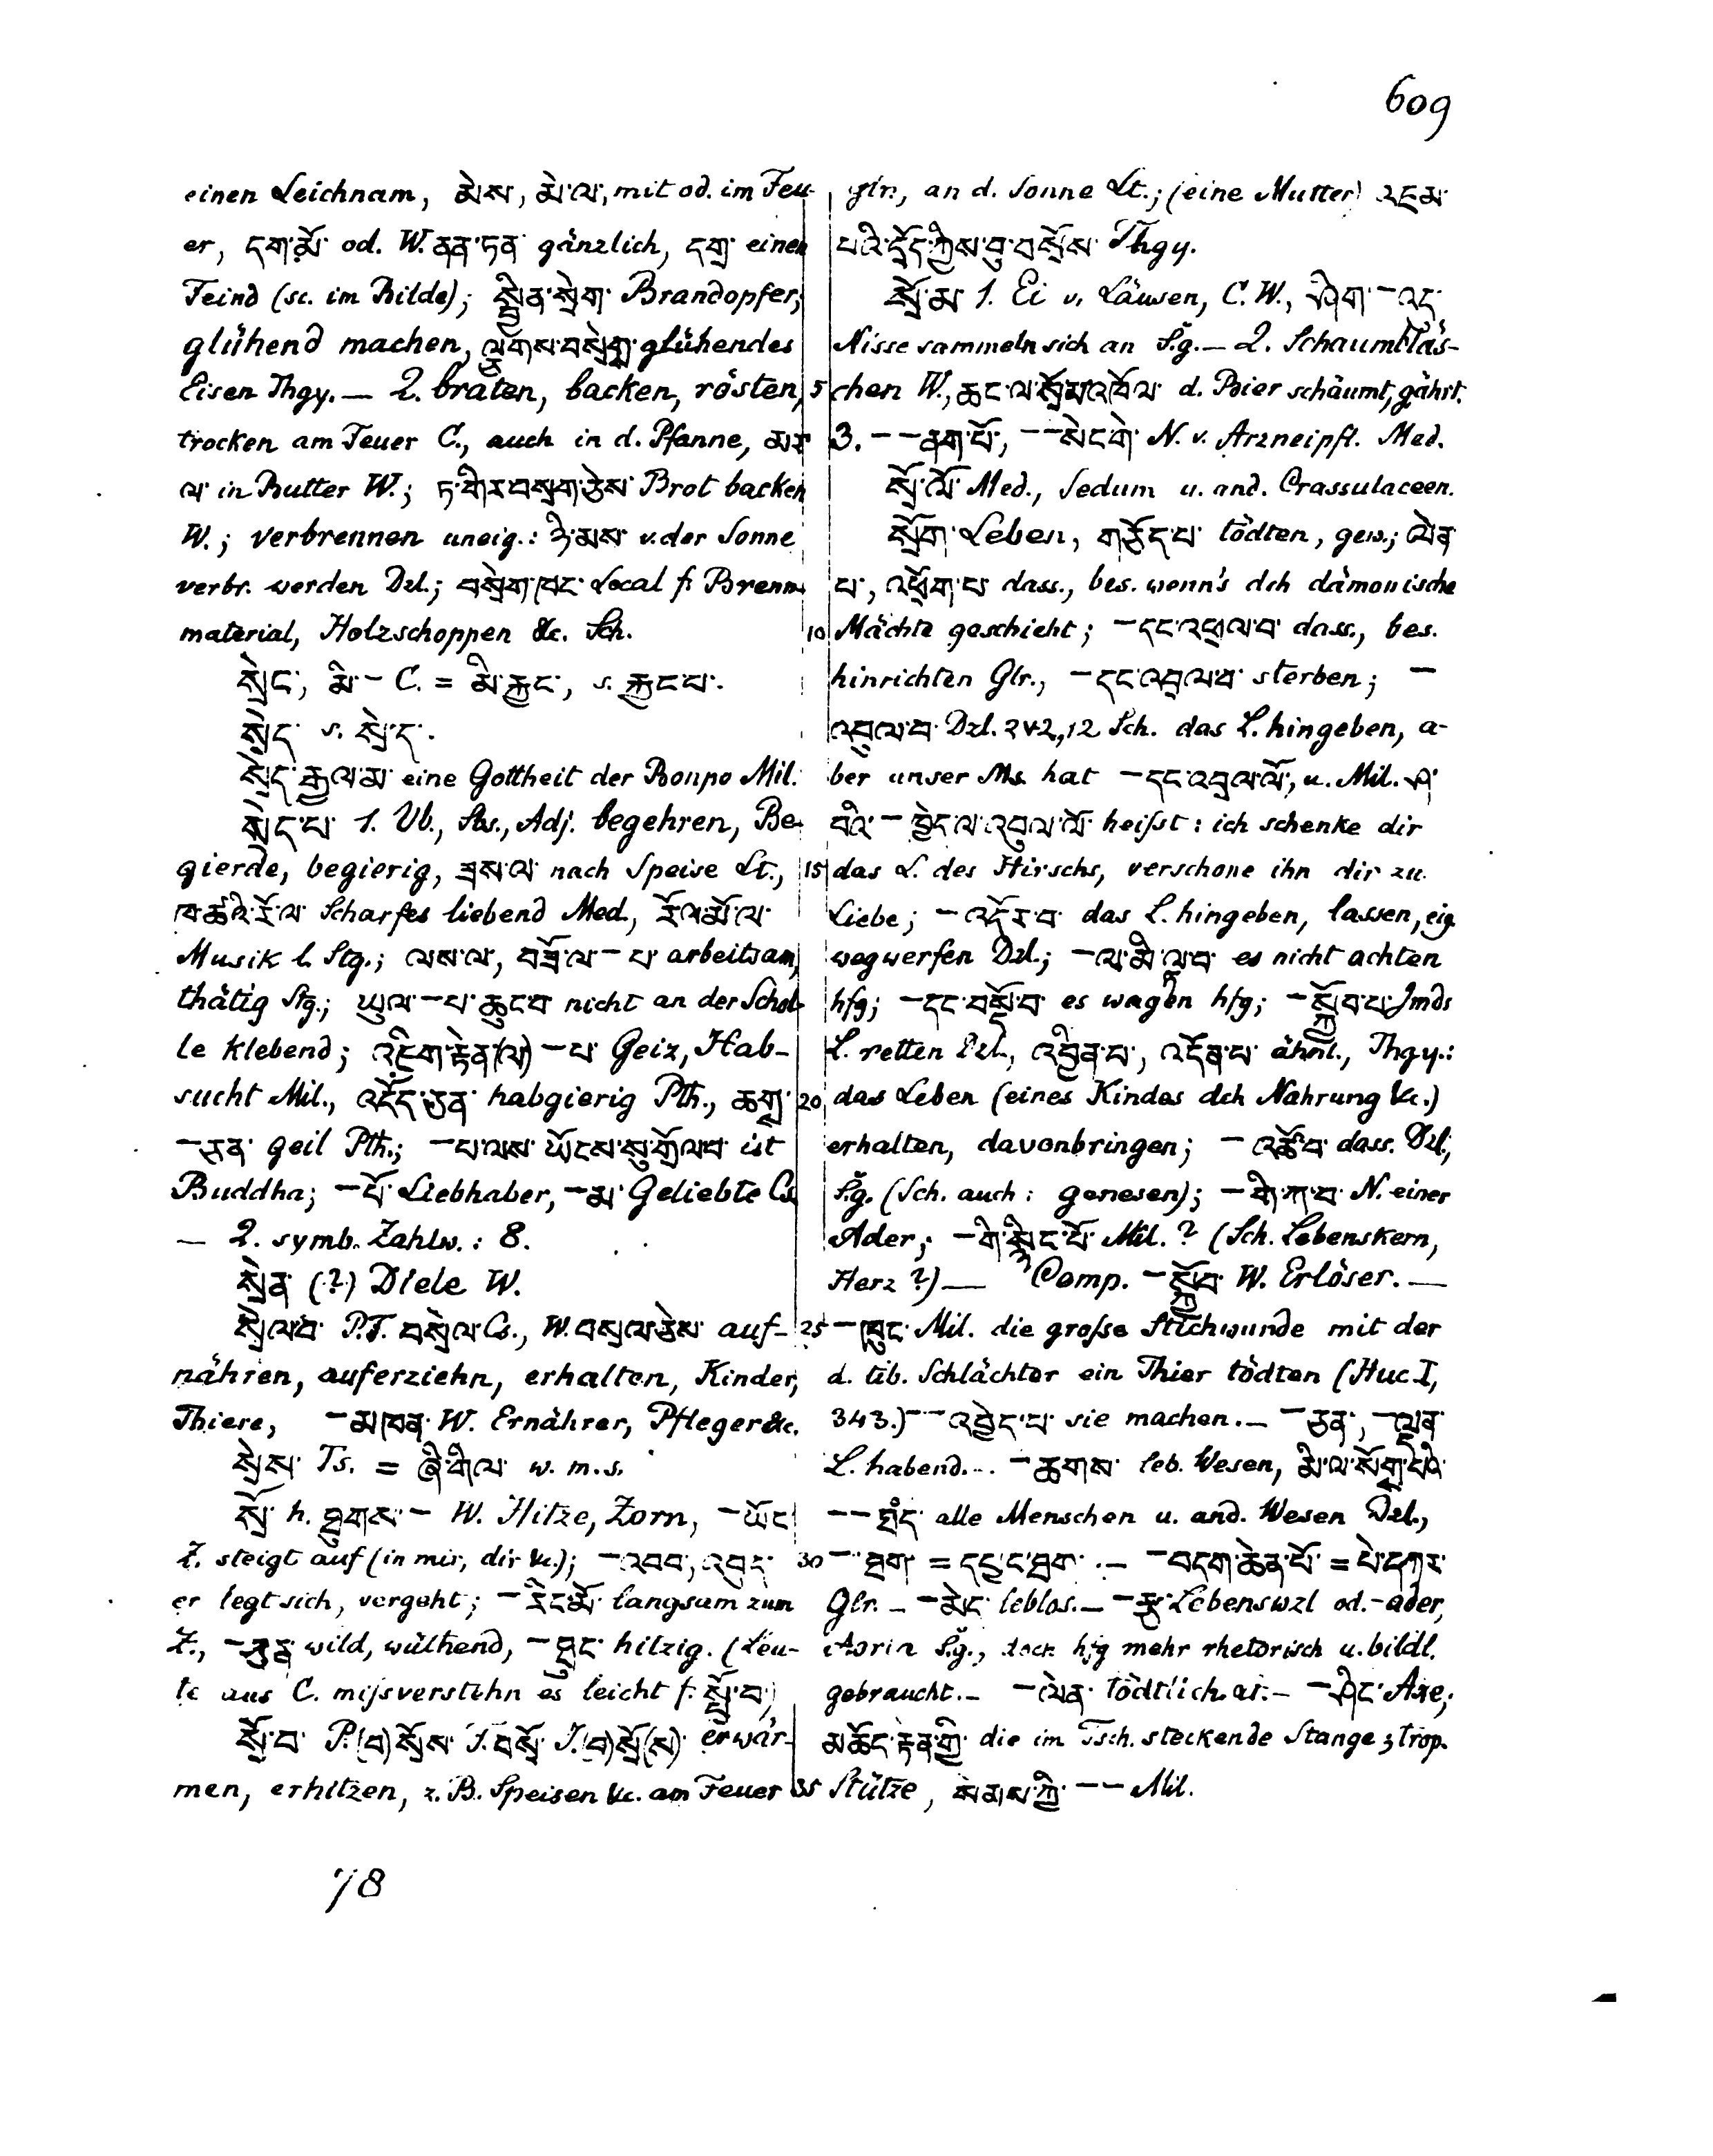 609
einen Leichnam, མེས, མེ་ལ, mit od. im Feu-
er, དག་མོ od. W. ནན་ཏན gänzlich, དགྲ་ einen
Feind (sc. im Bilde); སྦྱིན་སྲེག་ Brandopfer;
glühend machen, ལྕགས་བསྲེགས་ glühendes
Eisen Thgy. — 2. braten, backen, rösten,
trocken am Feuer C., auch in d. Pfanne, མར་
ལ་ in Butter W.; ཏ་གིར་བསྲག་ཅེས་ Brot backen
W.; verbrennen uneig.: ཉི་མས་ v. der Sonne
verbr. werden Dzl.; བསྲེག་ཁང་ Local f. Brenn-
material, Holzschoppen &c. Sch.
སྲེང་, མི་ – C. = མི་རྐྱང་, s. རྐྱང་པ་.
སྲེད་ s. སྲེ་ད་.
སྲེད་རྒྱལ་མ་ eine Gottheit der Bonpo Mil.
སྲེད་པ་ 1. Vb., Sbs., Adj. begehren, Be-
gierde, begierig, ཟས་ལ་ nach Speise Lt.,
ཁ་ཚའི་རོ་ལ་ Scharfes liebend Med., རོལ་མོ་ལ་
Musik l. Stg.; ལས་ལ་, བཟོ་ལ་ – པ་ arbeitsam,
thätig Stg.; ཡུལ་ – པ་ཆུང་བ་ nicht an der Schol-
le klebend; འཇིག་རྟེན་(ལ) – པ་ Geiz, Hab-
sucht Mil., འདོད་ཅན་ habgierig Pth., ཆགས་
– ཅན་ geil Pth.; – པ་ལས་ཡོངས་སུ་གྲོལ་བ་ ist
Buddha; – པོ་ Liebhaber, – མ་ Geliebte Cs.
— 2. symb. Zahlw.: 8.
སྲེན་ (?) Diele W.
སྲེལ་བ་ P.F. བསྲེལ་ Cs., W. བསྲལ་ཅེས་ auf-
nähren, auferziehn, erhalten, Kinder,
Thiere, – མཁན་ W. Ernährer, Pfleger &c.
སྲེས་ Ts. = ཞི་གིལ་ w. m. s.
སྲོ་ h. ཐུགས་ – W. Hitze, Zorn, – ཡོང་
Z. steigt auf (in mir, dir &c.); – འབབ་, འབུད་
er legt sich, vergeht; – རིང་མོ་ langsam zum
Z., – ཅན་ wild, wüthend, – ཐུང་ hitzig. (Leu-
te aus C. missverstehn es leicht f. སྤྲོ་བ་)
སྲོ་བ་ P. (བ)སྲོས་ F. བསྲོ་ J. (བ)སྲོ(ས) erwär-
men, erhitzen, z. B. Speisen &c. am Feuer
78
glr., an d. Sonne Lt.; (eine Mutter) འཇམ་
པའི་དྲོད་ཀྱིས་བུ་བསྲོས་ Thgy.
སྲོ་མ་ 1. Ei v. Läusen, C. W., ཤིག་ – འདུ་
Nisse sammeln sich an S.g. — 2. Schaumbläs-
5 chen W., ཆང་ལ་སྲོ་མ་འཁོལ་ d. Bier schäumt, gährt.
3. – – ནག་པོ་, – – སེང་གེ་ N. v. Arzneipfl. Med.
སྲོ་ལོ་ Med., Sedum u. and. Crassulaceen.
སྲོག་ Leben, གཅོད་པ་ tödten, gew.; ལེན་
པ་, འཕྲོག་པ་ dass., bes. wenn's dch dämonische
10 Mächte geschieht; – དང་འཕྲལ་བ་ dass., bes.
hinrichten Glr., – དང་འབྲལ་བ་ sterben; –
འབུལ་བ་ Dzl. ༢༧༢, 12 Sch. das L. hingeben, a-
ber unser Ms. hat – དང་འབྲལ་ལོ་, u. Mil. ཤ་
བའི་ – ཁྱེད་ལ་འབུལ་ལོ་ heisst: ich schenke dir
15 das L. des Hirschs, verschone ihn dir zu
Liebe; – འདོར་བ་ das L. hingeben, lassen, eig.
wegwerfen Dzl.; – ལ་མི་ལྟ་བ་ es nicht achten
hfg; – དང་བསྡོ་བ་ es wagen hfg; – སྐྱོབ་པ་ Jmds
L. retten Dzl., འབྱིན་པ་, འདོན་པ་ ähnl., Thgy.:
20 das Leben (eines Kindes dch Nahrung &c.)
erhalten, davonbringen; – འཚོ་བ་ dass. Dzl.,
S.g. (Sch. auch: genesen); – གི་ཀ་བ་ N. einer
Ader; – གི་སྙིང་པོ་ Mil. ? (Sch. Lebenskern,
Herz ?) — Comp. – སྐྱོབ་ W. Erlöser. —
25 – ཁུང་ Mil. die grosse Stichwunde mit der
d. tib. Schlächter ein Thier tödten (Huc I,
343.) – – འབྱེད་པ་ sie machen. — – ཅན་, – ལྡན་
L. habend. – – ཆགས་ leb. Wesen, མི་ལ་སོགས་པའི་
– – ཀུན་ alle Menschen u. and. Wesen Dzl.,
30 – ཐག་ = དཔྱང་ཐག་. — – བདག་ཆེན་པོ་ = པེ་དཀར་
Glr. — – མེད་ leblos. — – རྩ་ Lebenswzl od. -ader,
Aorta S.g., doch hfg mehr rhetorisch u. bildl.
gebraucht. — – ལེན་ tödtlich. — – ཤིང་ Axe,
མཆོད་རྟེན་གྱི་ die im Tsch. steckende Stange; trop.
35 Stütze, སེམས་ཀྱི་ – – Mil.